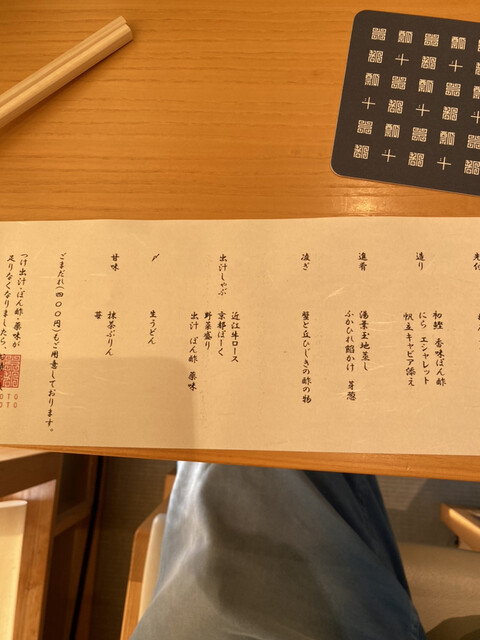 造り
初鰹 香味ぽん酢
にら エシャレット
帆立キャビア添え
進肴
湯葉玉地蒸し
ふかひれ餡かけ 芽葱
凌ぎ
蟹と立ひじきの酢の物
出汁しゃぶ
近江牛ロース
京都ぽーく
野菜盛り
出汁 ぽん酢 薬味
〆
生うどん
甘味
抹茶ぷりん
苺
ごまだれ(四〇〇円)もご用意しております。
つけ出汁・ぽん酢・薬味が
足りなくなりましたら、